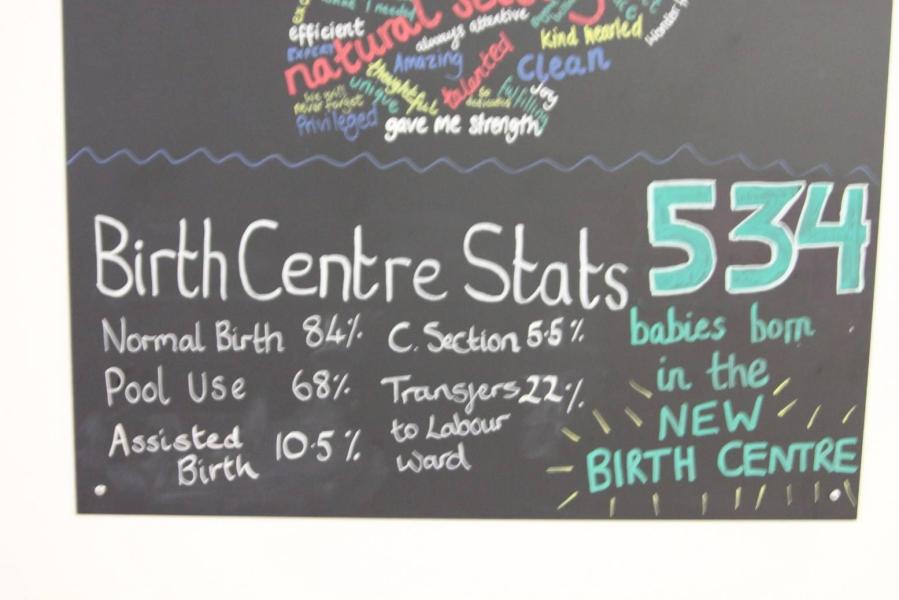 what I needed
efficient
always attentive
kind hearted
Expert
natural
Amazing
talented
clean
thoughtful
unique
We will
never forget
so
dedicated
fulfilling
Joy
Privileged
gave me strength
Birth Centre Stats
534
babies born
in the
NEW
BIRTH CENTRE
Normal Birth 84%
Pool Use 68%
Assisted
Birth 10.5%
C. Section 5.5%
Transfers 22%
to Labour
Ward